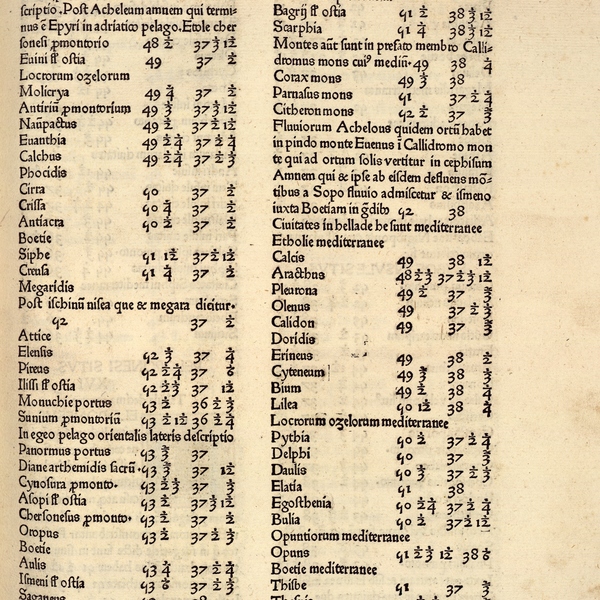 scriptio. Post Acheleum amnem qui termi-
nus ē Epyri in adriatico pelago. Etole cher
sonesi ꝓmontorio 48 ½ 37 ⅓ 1/12
Euini fl̄ ostia 49 37 ½
Locrorum ozelorum
Molicrya 49 ¼ 37 ½
Antiriū ꝓmontorium 49 ⅓ 37 ⅓ 1/12
Naūpactus 49 ½ 37 ½ 1/12
Euanthia 49 ½ ¼ 37 ½ ¼
Calcbus 49 ½ ¼ 37 ½ ⅓
Phocidis
Cirra 50 37 ½
Crissa 50 ¼ 37 ½
Antiacra 50 ½ 37 ½
Boetie
Siphe 51 1/12 37 ½ 1/12
Creusa 51 ¼ 37 ½
Megaridis
Post ischinū nisea que & megara dicitur.
52 37 ½
Attice
Elensis 52 ⅓ 37 ¼
Pireus 52 ½ ¼ 37 ⅙
Ilissi fl̄ ostia 52 ½ ⅓ 37 1/12
Monuchie portus 53 ½ 36 ½ ⅓
Sunium ꝓmontoriū 53 ½ 1/12 36 ½ ¼
In egeo pelago orientalis lateris descriptio
Panormus portus 53 ⅓ 37
Diane arthemidis sacrū. 53 ⅓ 37 1/12
Cynosura ꝓmonto. 53 ½ ⅓ 37 ½
Asopi fl̄ ostia 53 ½ 37 ⅓ 1/12
Chersonesus ꝓmonto. 53 ½ 37 ½
Oropus 53 ½ 37 ½ ⅓
Boetie
Aulis 53 ¼ 37 ½ ¼
Ismeni fl̄ ostia 53 ⅙ 37 ½ ⅓
Bagrij fl̄ ostia 51 ½ 38 ⅓ 1/12
Scarphia 51 ¼ 38 ⅓ 1/12
Montes aūt sunt in prefato membro Calli-
dromus mons cuiꝰ mediū. 49 38 ¼
Corax mons 49 ⅓ 38
Parnasus mons 51 37 ½ ¼
Citheron mons 52 ½ 37 ⅔
Fluuiorum Achelous quidem ortū habet
in pindo monte Euenus ī Callidromo mon
te qui ad ortum solis vertitur in cephisum
Amnem qui & ipse ab eisdem defluens mō-
tibus a Sopo fluuio admiscetur & ismeno
iuxta Boetiam in gdib9 52 38
Ciuitates in hellade he sunt mediterranee
Etholie mediterranee
Calcis 49 38 1/12
Aracthus 48 ½ ⅓ 37 ½ ⅓ 1/12
Pleurona 49 ½ 37 ⅔
Olenus 49 37 ½ ⅓
Calidon 49 37 ⅔
Doridis
Erineus 49 38 ½
Cyteneum 49 ⅔ 38 ⅔
Bium 49 ½ 38 ¼
Lilea 50 1/12 38 ¼
Locrorum ozelorum mediterranee
Pythia 50 ½ 37 ½ ¼
Delphi 50 37 ⅔
Daulis 50 ⅓ 37 ½ ⅓
Elatia 51 38
Egosthenia 50 ½ ¼ 37 ½ ¼
Bulia 50 ½ 37 ½ 1/12
Opuntiorum mediterranee
Opuns 51 ½ ⅓ 1/12 38 ⅙
Boetie mediterranee
Thisbe 51 37 ⅔